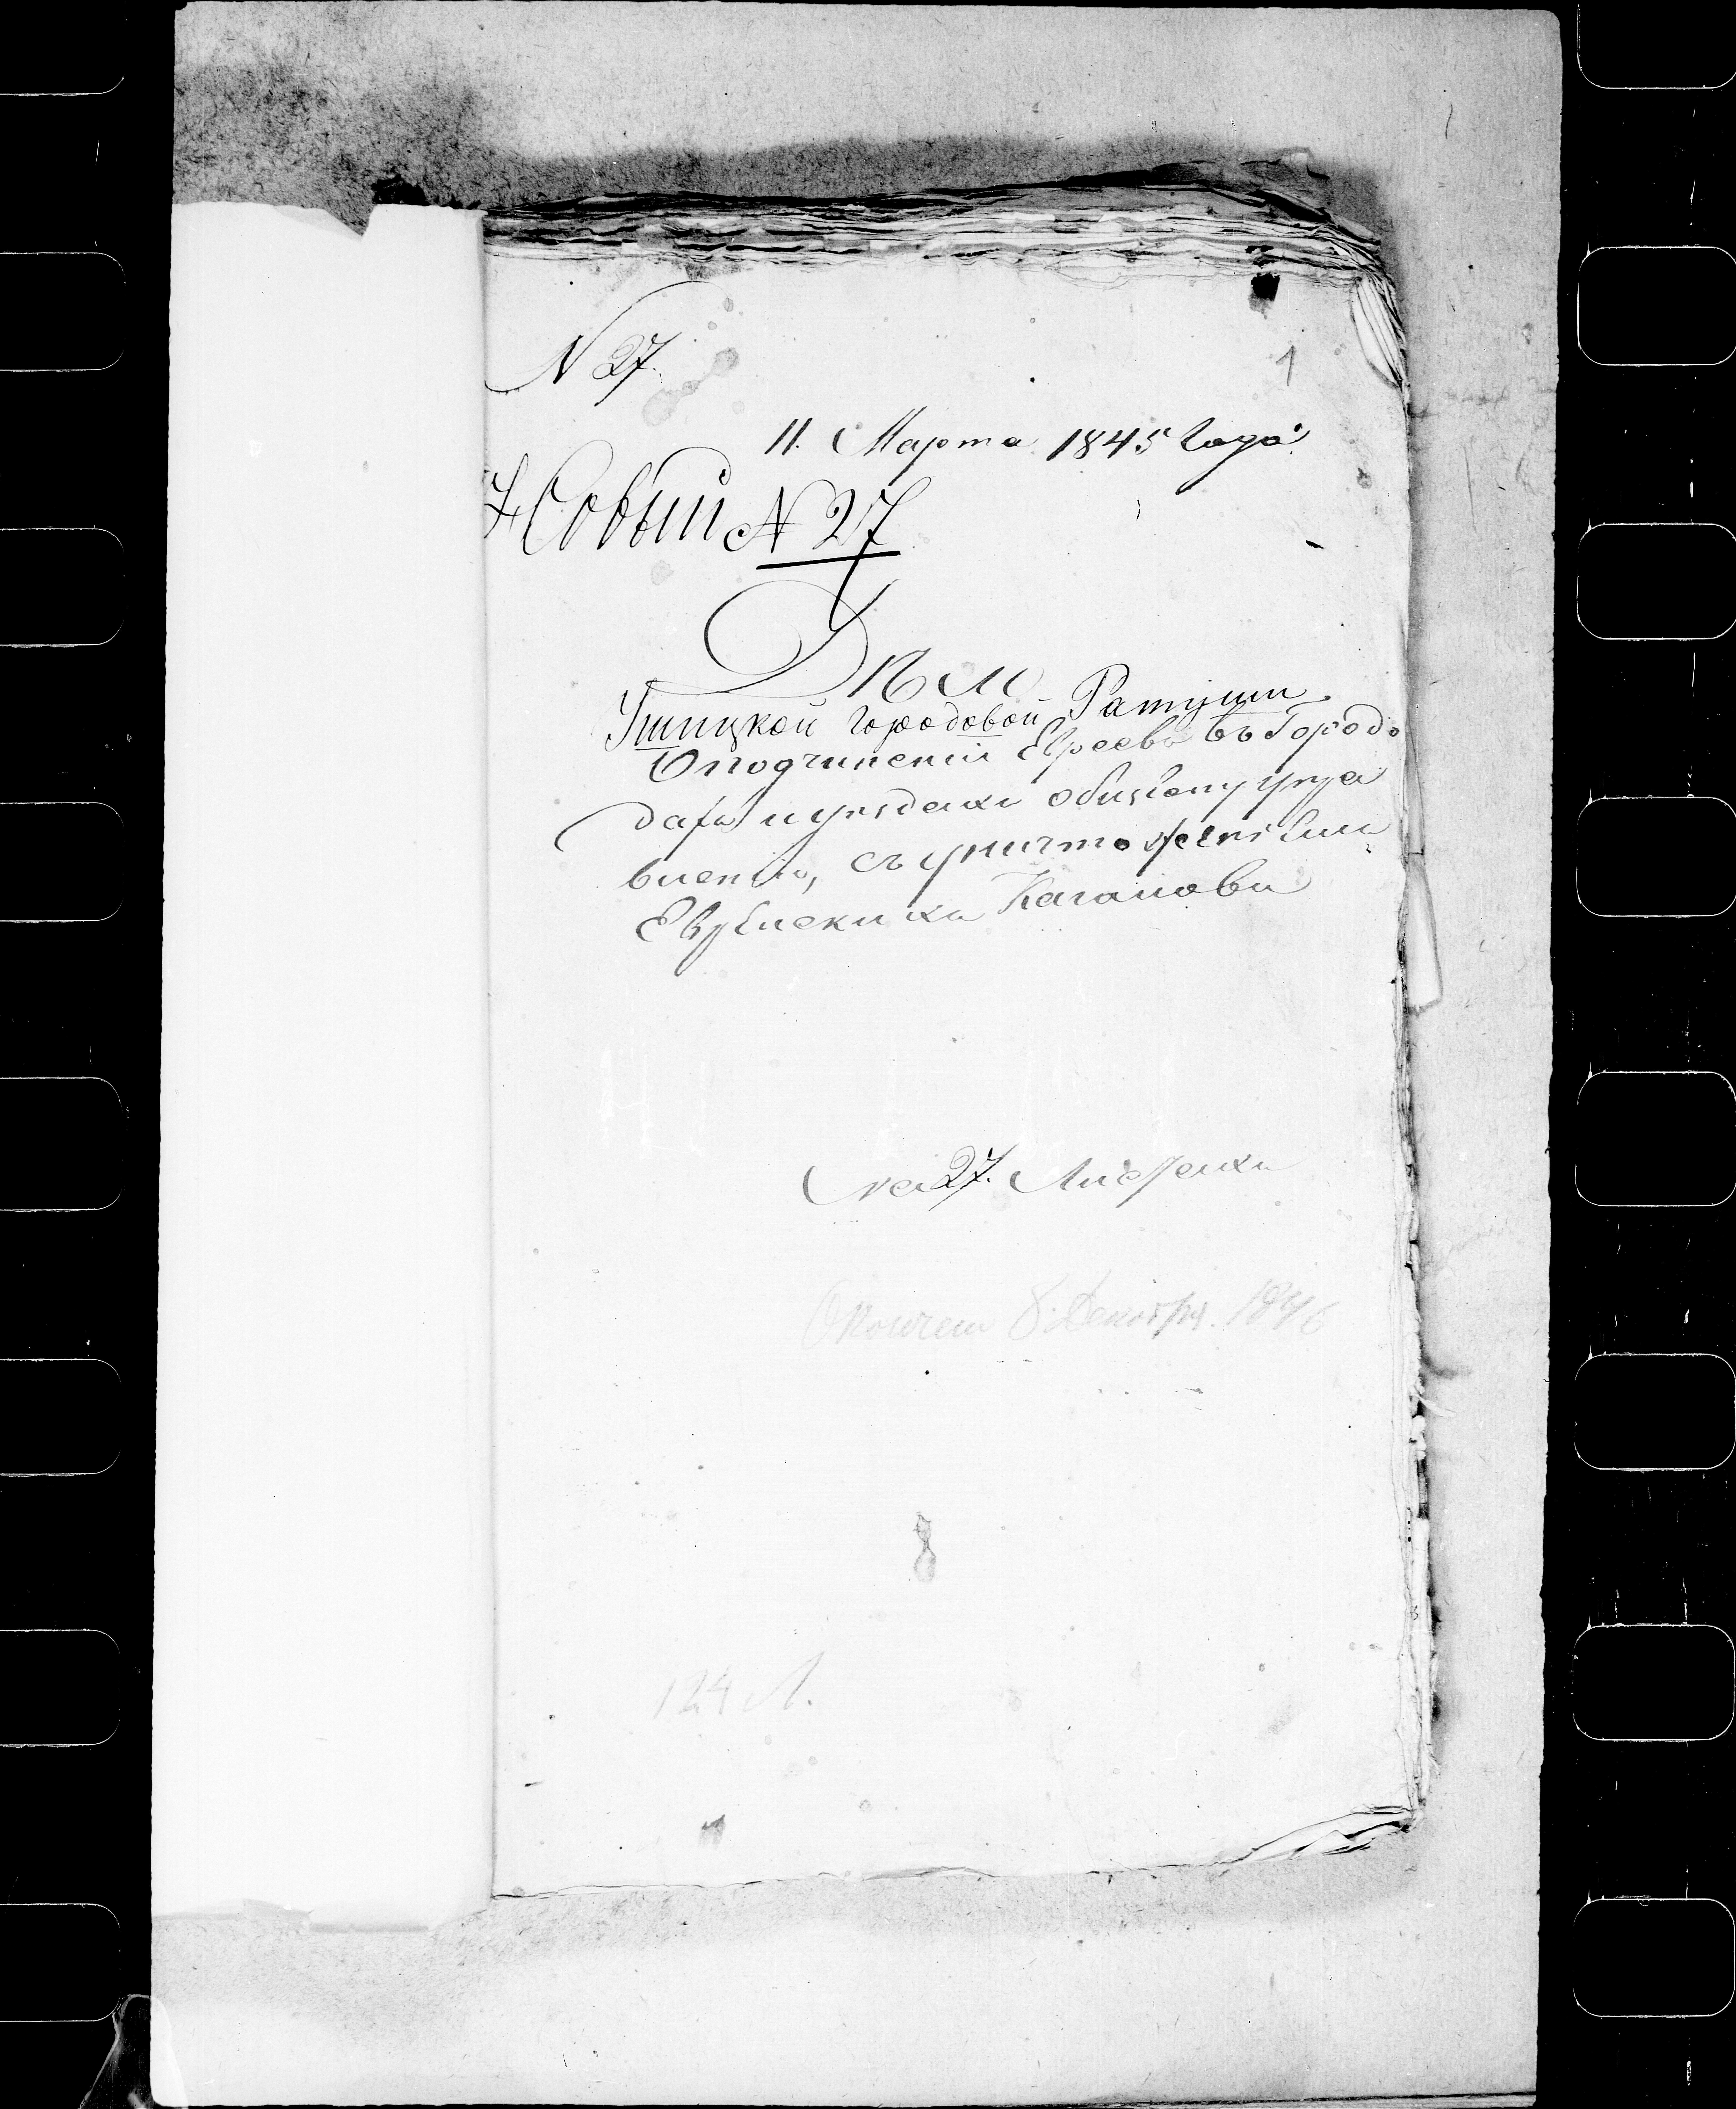 N 27.
1
11. Марта 1845 года
Новый № 27
Дѣло
Ушицкой городовой Ратуши
О подчиненіи Евреевъ въ Городо
дахъ и уѣздахъ общему упра
вленію, съ уничтоженіем
Еврейскихъ Кагаловъ
на 27. Листахъ
Окончен 8 Декабря 1846
124 Л.